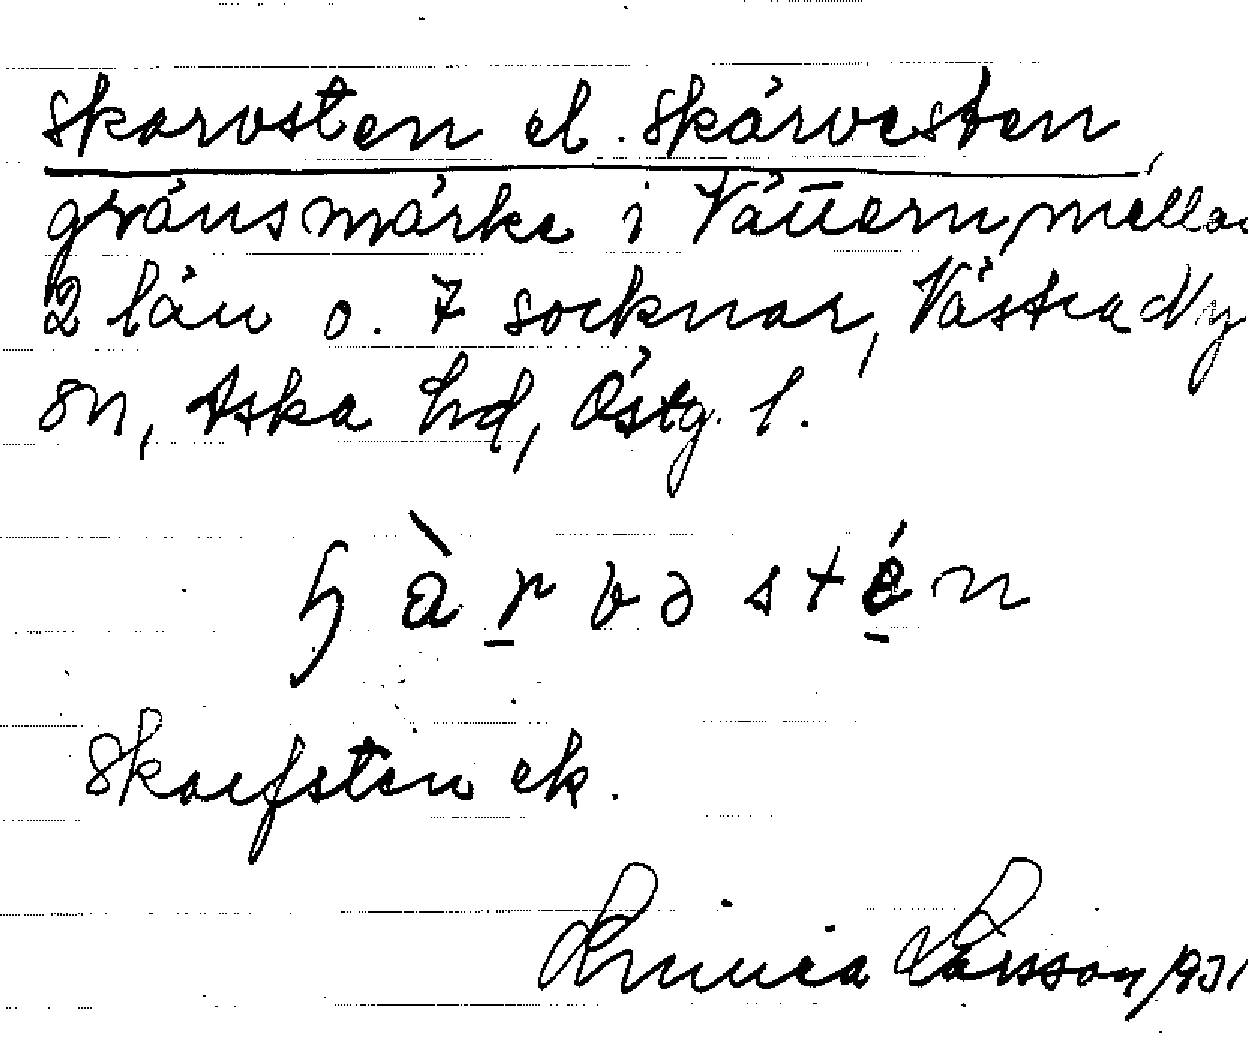 skarvsten el. skärvesten,
gränsmärke i Vättern, mellan
2 län o. 7 socknar, Västra Ny
sn, Aska hd, Östg. l.
ɧàrvəstén
Skarfsten ek.
Linnea Larsson 1931